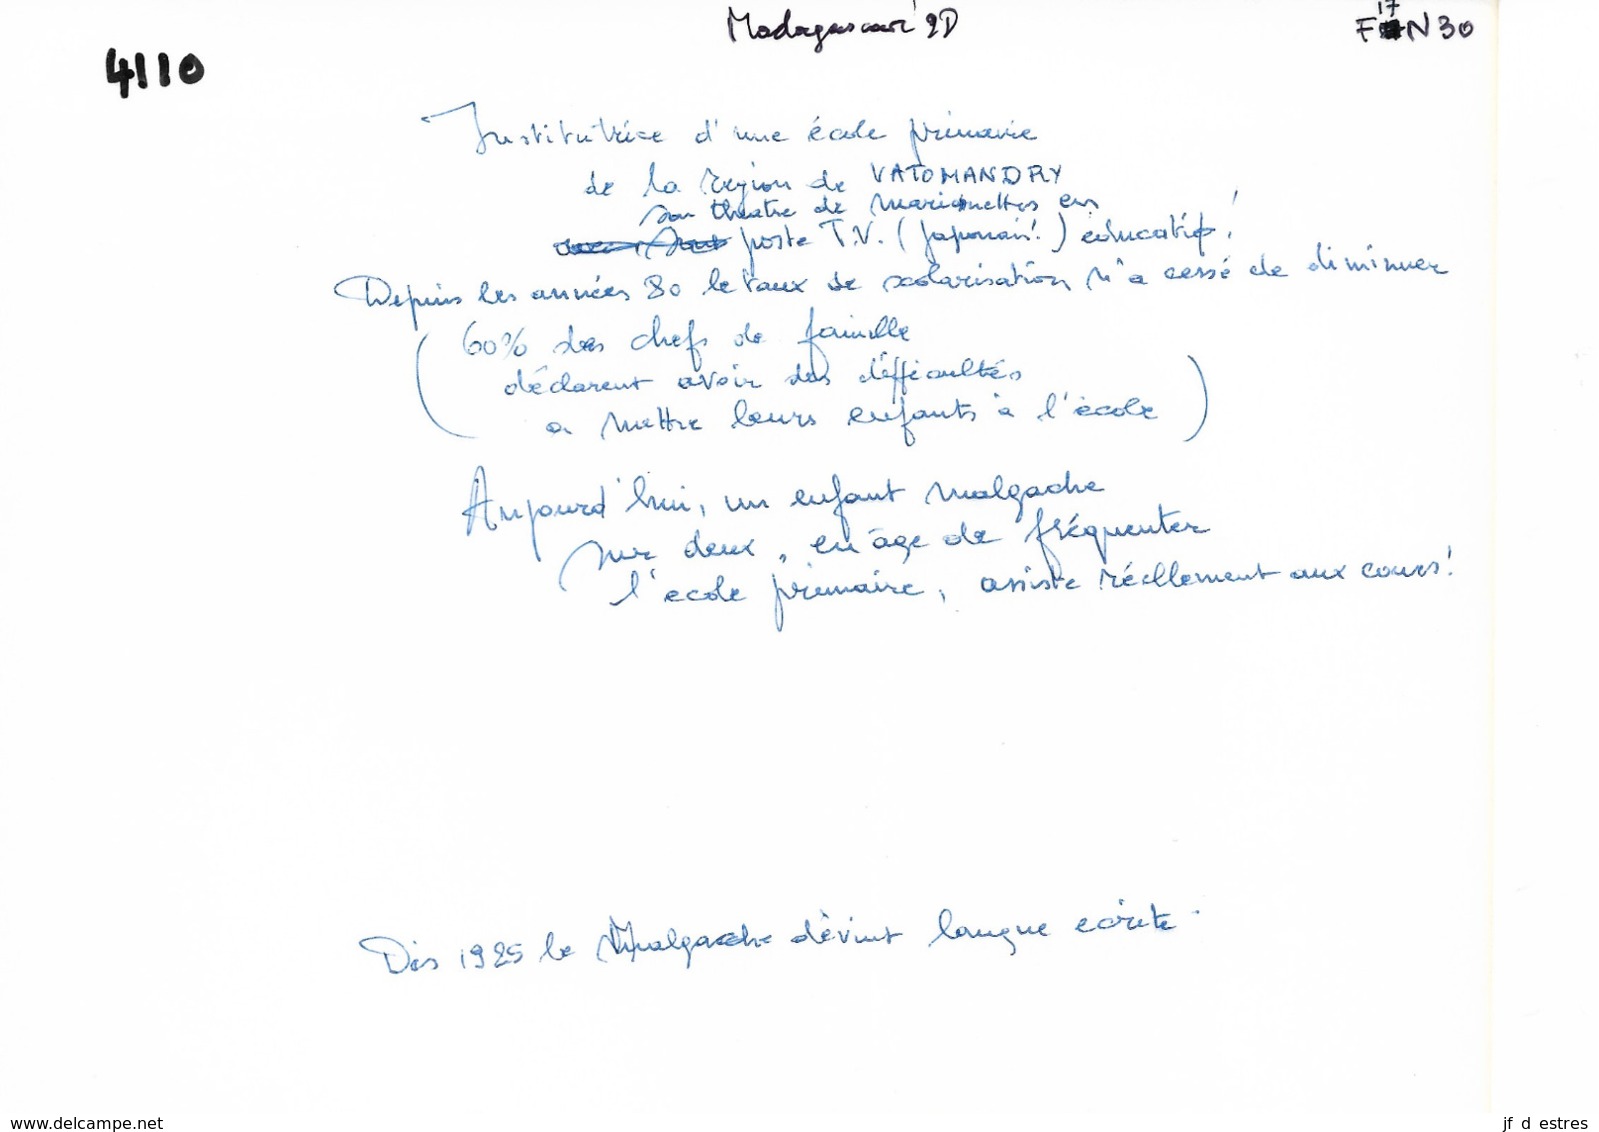 Madagascar 2D
F 17 N 30
4110
Institutrice d'une école primaire
de la région de VATOMANDRY
son théatre de marionettes en
poste T.V. (Japonais!) éducatif!
Depuis les années 80 le taux de scolarisation n'a cessé de diminuer
(60% des chefs de famille
déclarent avoir des difficultés
a mettre leurs enfants à l'école)
Aujourd'hui, un enfant malgache
sur deux, en âge de fréquenter
l'école primaire, assiste réellement aux cours!
Dès 1925 le Malgache devint langue écrite.
www.delcampe.net
jf d estres